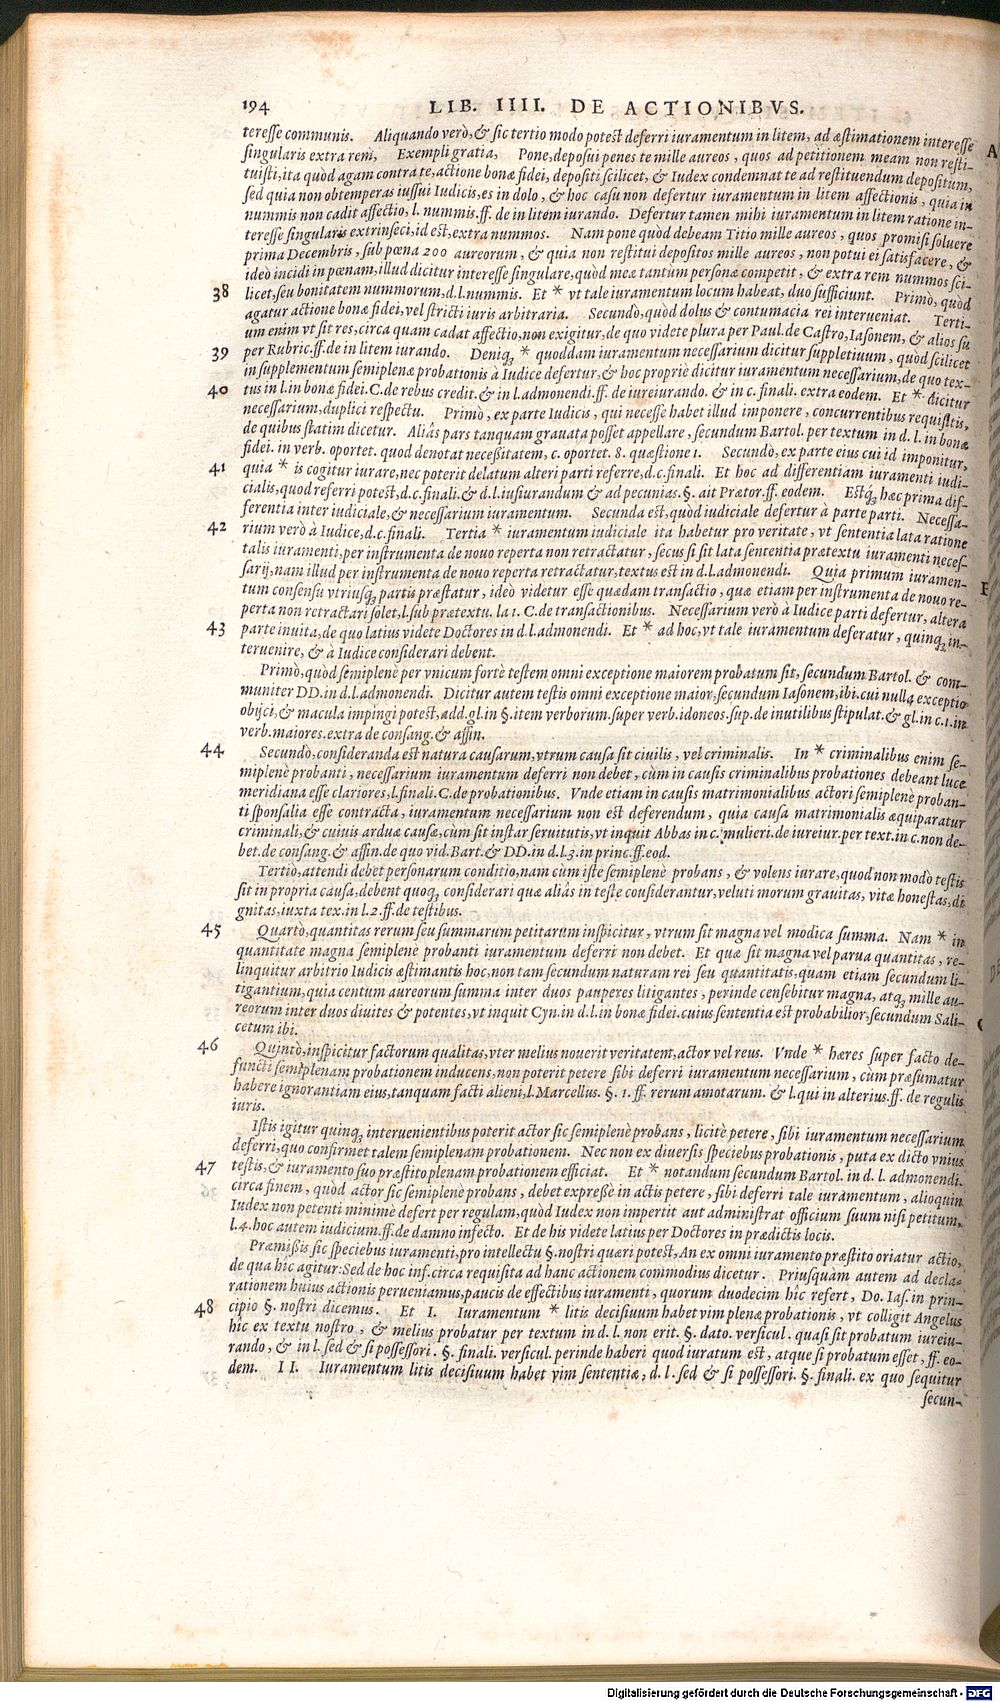 194 LIB. IIII. DE ACTIONIBVS.
teresse communis. Aliquando verò, & sic tertio modo potest deferri iuramentum in litem, ad æstimationem interesse
singularis extra rem, Exempli gratia, Pone, deposui penes te mille aureos, quos ad petitionem meam non resti-
tuisti, ita quòd agam contra te, actione bonæ fidei, depositi scilicet, & Iudex condemnat te ad restituendum depositum,
sed quia non obtemperas iussui Iudicis, es in dolo, & hoc casu non defertur iuramentum in litem affectionis, quia in
nummis non cadit affectio, l. nummis. ff. de in litem iurando. Defertur tamen mihi iuramentum in litem ratione in-
teresse singularis extrinseci, id est, extra nummos. Nam pone quòd debeam Titio mille aureos, quos promisi soluere
prima Decembris, sub pœna 200 aureorum, & quia non restitui depositos mille aureos, non potui ei satisfacere, &
ideò incidi in pœnam, illud dicitur interesse singulare, quòd meæ tantum personæ competit, & extra rem nummos sci-
38 licet, seu bonitatem nummorum, d. l. nummis. Et * vt tale iuramentum locum habeat, duo sufficiunt. Primò, quòd
agatur actione bonæ fidei, vel stricti iuris arbitraria. Secundò, quòd dolus & contumacia rei interueniat. Terti-
um enim vt sit res, circa quam cadat affectio, non exigitur, de quo videte plura per Paul. de Castro, Iasonem, & alios su
39 per Rubric. ff. de in litem iurando. Deniq; * quoddam iuramentum necessarium dicitur suppletiuum, quòd scilicet
in supplementum semiplenæ probationis à Iudice defertur, & hoc propriè dicitur iuramentum necessarium, de quo tex-
40 tus in l. in bonæ fidei. C. de rebus credit. & in l. admonendi. ff. de iureiurando. & in c. finali. extra eodem. Et * dicitur
necessarium, duplici respectu. Primò, ex parte Iudicis, qui necesse habet illud imponere, concurrentibus requisitis,
de quibus statim dicetur. Aliâs pars tanquam grauata posset appellare, secundum Bartol. per textum in d. l. in bonæ
fidei. in verb. oportet. quod denotat necessitatem, c. oportet. 8. quæstione 1. Secundò, ex parte eius cui id imponitur,
41 quia * is cogitur iurare, nec poterit delatum alteri parti referre, d. c. finali. Et hoc ad differentiam iuramenti iudi-
cialis, quod referri potest, d. c. finali. & d. l. iusiurandum & ad pecunias. §. ait Prætor. ff. eodem. Estq́; hæc prima dif-
ferentia inter iudiciale, & necessarium iuramentum. Secunda est, quòd iudiciale defertur à parte parti. Necessa-
42 rium verò à Iudice, d. c. finali. Tertia * iuramentum iudiciale ita habetur pro veritate, vt sententia lata ratione
talis iuramenti, per instrumenta de nouo reperta non retractatur, secus si sit lata sententia prætextu iuramenti neces-
sarij, nam illud per instrumenta de nouo reperta retractatur, textus est in d. l. admonendi. Quia primum iuramen-
tum consensu vtriusq; partis præstatur, ideò videtur esse quædam transactio, quæ etiam per instrumenta de nouo re-
perta non retractari solet, l. sub prætextu. la 1. C. de transactionibus. Necessarium verò à Iudice parti defertur, altera
43 parte inuita, de quo latius videte Doctores in d. l. admonendi. Et * ad hoc, vt tale iuramentum deferatur, quinq; in-
teruenire, & à Iudice considerari debent.
Primò, quòd semiplenè per vnicum fortè testem omni exceptione maiorem probatum sit, secundum Bartol. & com-
muniter DD. in d. l. admonendi. Dicitur autem testis omni exceptione maior, secundum Iasonem, ibi. cui nulla exceptio
obijci, & macula impingi potest, add. gl. in §. item verborum. super verb. idoneos. sup. de inutilibus stipulat. & gl. in c. 1. in
verb. maiores. extra de consang. & affin.
44 Secundò, consideranda est natura causarum, vtrum causa sit ciuilis, vel criminalis. In * criminalibus enim se-
miplenè probanti, necessarium iuramentum deferri non debet, cùm in causis criminalibus probationes debeant luce
meridiana esse clariores, l. finali. C. de probationibus. Vnde etiam in causis matrimonialibus actori semiplenè proban-
ti sponsalia esse contracta, iuramentum necessarium non est deferendum, quia causa matrimonialis æquiparatur
criminali, & cuiuis arduæ causæ, cùm sit instar seruitutis, vt inquit Abbas in c. mulieri. de iureiur. per text. in c. non de-
bet. de consang. & affin. de quo vid. Bart. & DD. in d. l. 3. in princ. ff. eod.
Tertiò, attendi debet personarum conditio, nam cùm iste semiplenè probans, & volens iurare, quod non modò testis
sit in propria causa. debent quoq; considerari quæ aliâs in teste considerantur, veluti morum grauitas, vitæ honestas, di
gnitas, iuxta tex. in l. 2. ff. de testibus.
45 Quartò, quantitas rerum seu summarum petitarum inspicitur, vtrum sit magna vel modica summa. Nam * in
quantitate magna semiplenè probanti iuramentum deferri non debet. Et quæ sit magna vel parua quantitas, re-
linquitur arbitrio Iudicis æstimantis hoc, non tam secundum naturam rei seu quantitatis, quàm etiam secundum li-
tigantium, quia centum aureorum summa inter duos pauperes litigantes, perinde censebitur magna, atq; mille au-
reorum inter duos diuites & potentes, vt inquit Cyn. in d. l. in bonæ fidei. cuius sententia est probabilior, secundum Sali-
cetum ibi.
46 Quintò, inspicitur factorum qualitas, vter melius nouerit veritatem, actor vel reus. Vnde * hæres super facto de-
functi semiplenam probationem inducens, non poterit petere sibi deferri iuramentum necessarium, cùm præsumatur
habere ignorantiam eius, tanquam facti alieni, l. Marcellus. §. 1. ff. rerum amotarum. & l. qui in alterius. ff. de regulis
iuris.
Istis igitur quinq; interuenientibus poterit actor sic semiplenè probans, licitè petere, sibi iuramentum necessarium
deferri, quo confirmet talem semiplenam probationem. Nec non ex diuersis speciebus probationis, puta ex dicto vnius
47 testis, & iuramento suo præstito plenam probationem efficiat. Et * notandum secundum Bartol. in d. l. admonendi.
circa finem, quòd actor sic semiplenè probans, debet expressè in actis petere, sibi deferri tale iuramentum, alioquin
Iudex non petenti minimè defert per regulam, quòd Iudex non impertit aut administrat officium suum nisi petitum,
l. 4. hoc autem iudicium. ff. de damno infecto. Et de his videte latius per Doctores in prædictis locis.
Præmissis sic speciebus iuramenti, pro intellectu §. nostri quæri potest, An ex omni iuramento præstito oriatur actio,
de qua hîc agitur: Sed de hoc inf. circa requisita ad hanc actionem commodius dicetur. Priusquàm autem ad decla-
rationem huius actionis perueniamus, paucis de effectibus iuramenti, quorum duodecim hîc refert, Do. Ias. in prin-
48 cipio §. nostri dicemus. Et I. Iuramentum * litis decisiuum habet vim plenæ probationis, vt colligit Angelus
hîc ex textu nostro, & melius probatur per textum in d. l. non erit. §. dato. versicul. quasi sit probatum iureiu-
rando, & in l. sed & si possessori. §. finali. versicul. perinde haberi quod iuratum est, atque si probatum esset, ff. eo-
dem. II. Iuramentum litis decisiuum habet vim sententiæ, d. l. sed & si possessori. §. finali. ex quo sequitur
secun-
A
Digitalisierung gefördert durch die Deutsche Forschungsgemeinschaft - DFG